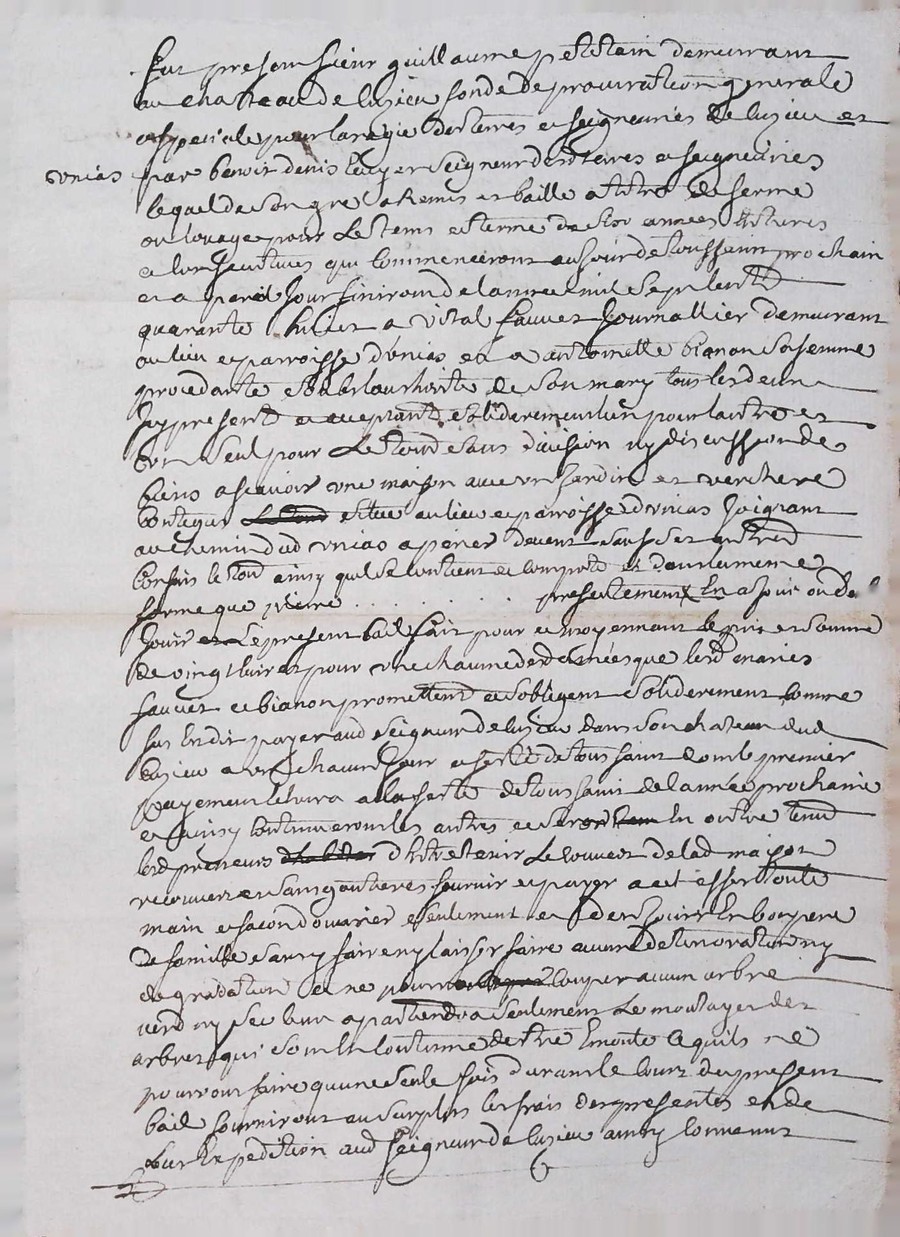 fut present sieur guillaume petitain demeurant
au chatteau de luzieu fondé de procuration generale
et speciale pour la regie des terres et seigneuries de luzieu et
unias par benoit denis seigneur desd terres et seigneuries
lequel de son gré a remis et baillé a titre de ferme
ou louage pour le tems et terme de six années
qui commenceront au jour de toussaint prochain
et a pareil jour finiront de lannée mil sept cent
quarante huict a vital fauvet journallier demeurant
au lieu et parroisse dunias et a antoinette bianon sa femme
procedante de lauthorité de son mary tous les deux
icy present et acceptant solidairement lun pour lautre et
un seul pour le tout sans division ny discussion de
biens a scavoir une maison avec un jardin et verchere
contigus situé au lieu et parroisse dunias joignant
au chemin dud unias a
le tout ainsy quil se contient et comporte et dans la meme
forme que presentement
jouir le present bail fait pour et moyennant le prix et somme
de vingt livres pour une chacune desd années que lesd maries
fauvet et bianon promettent et sobligent solidairement comme
sus est dit payer aud seigneur de luzieu dans son chateau dud
luzieu a un chacun jour et feste de toussaint dont le premier
payement a la feste de toussaint de lannée prochaine
et ainsy continueront les autres et en outre tenus
lesd preneurs dentretenir le couvert de lad maison
recouvert sans goutieres fournir et payer a cet effet toute
main et facon douvrier seulement et den jouir en bon pere
de famille sans y faire ny laisser faire aucune deterioration ny
degradation et ne pourront couper aucun arbre
verd ny sec leur apartiendra seulement le des
arbres qui sont en coutume detre emonté ce quils ne
pourront faire qu une seule fois durant le cours du present
bail fourniront au surplus les frais des presentes et de
leur expedition aud seigneur de luzieu ainsy convenu